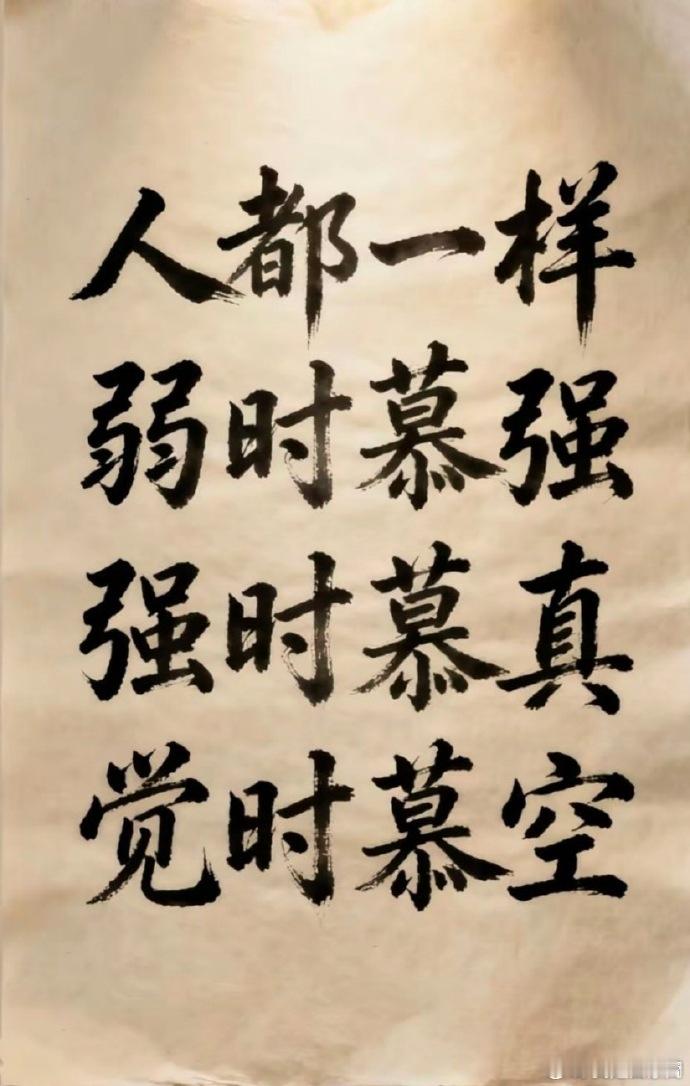 人都一样
弱时慕强
强时慕真
觉时慕空